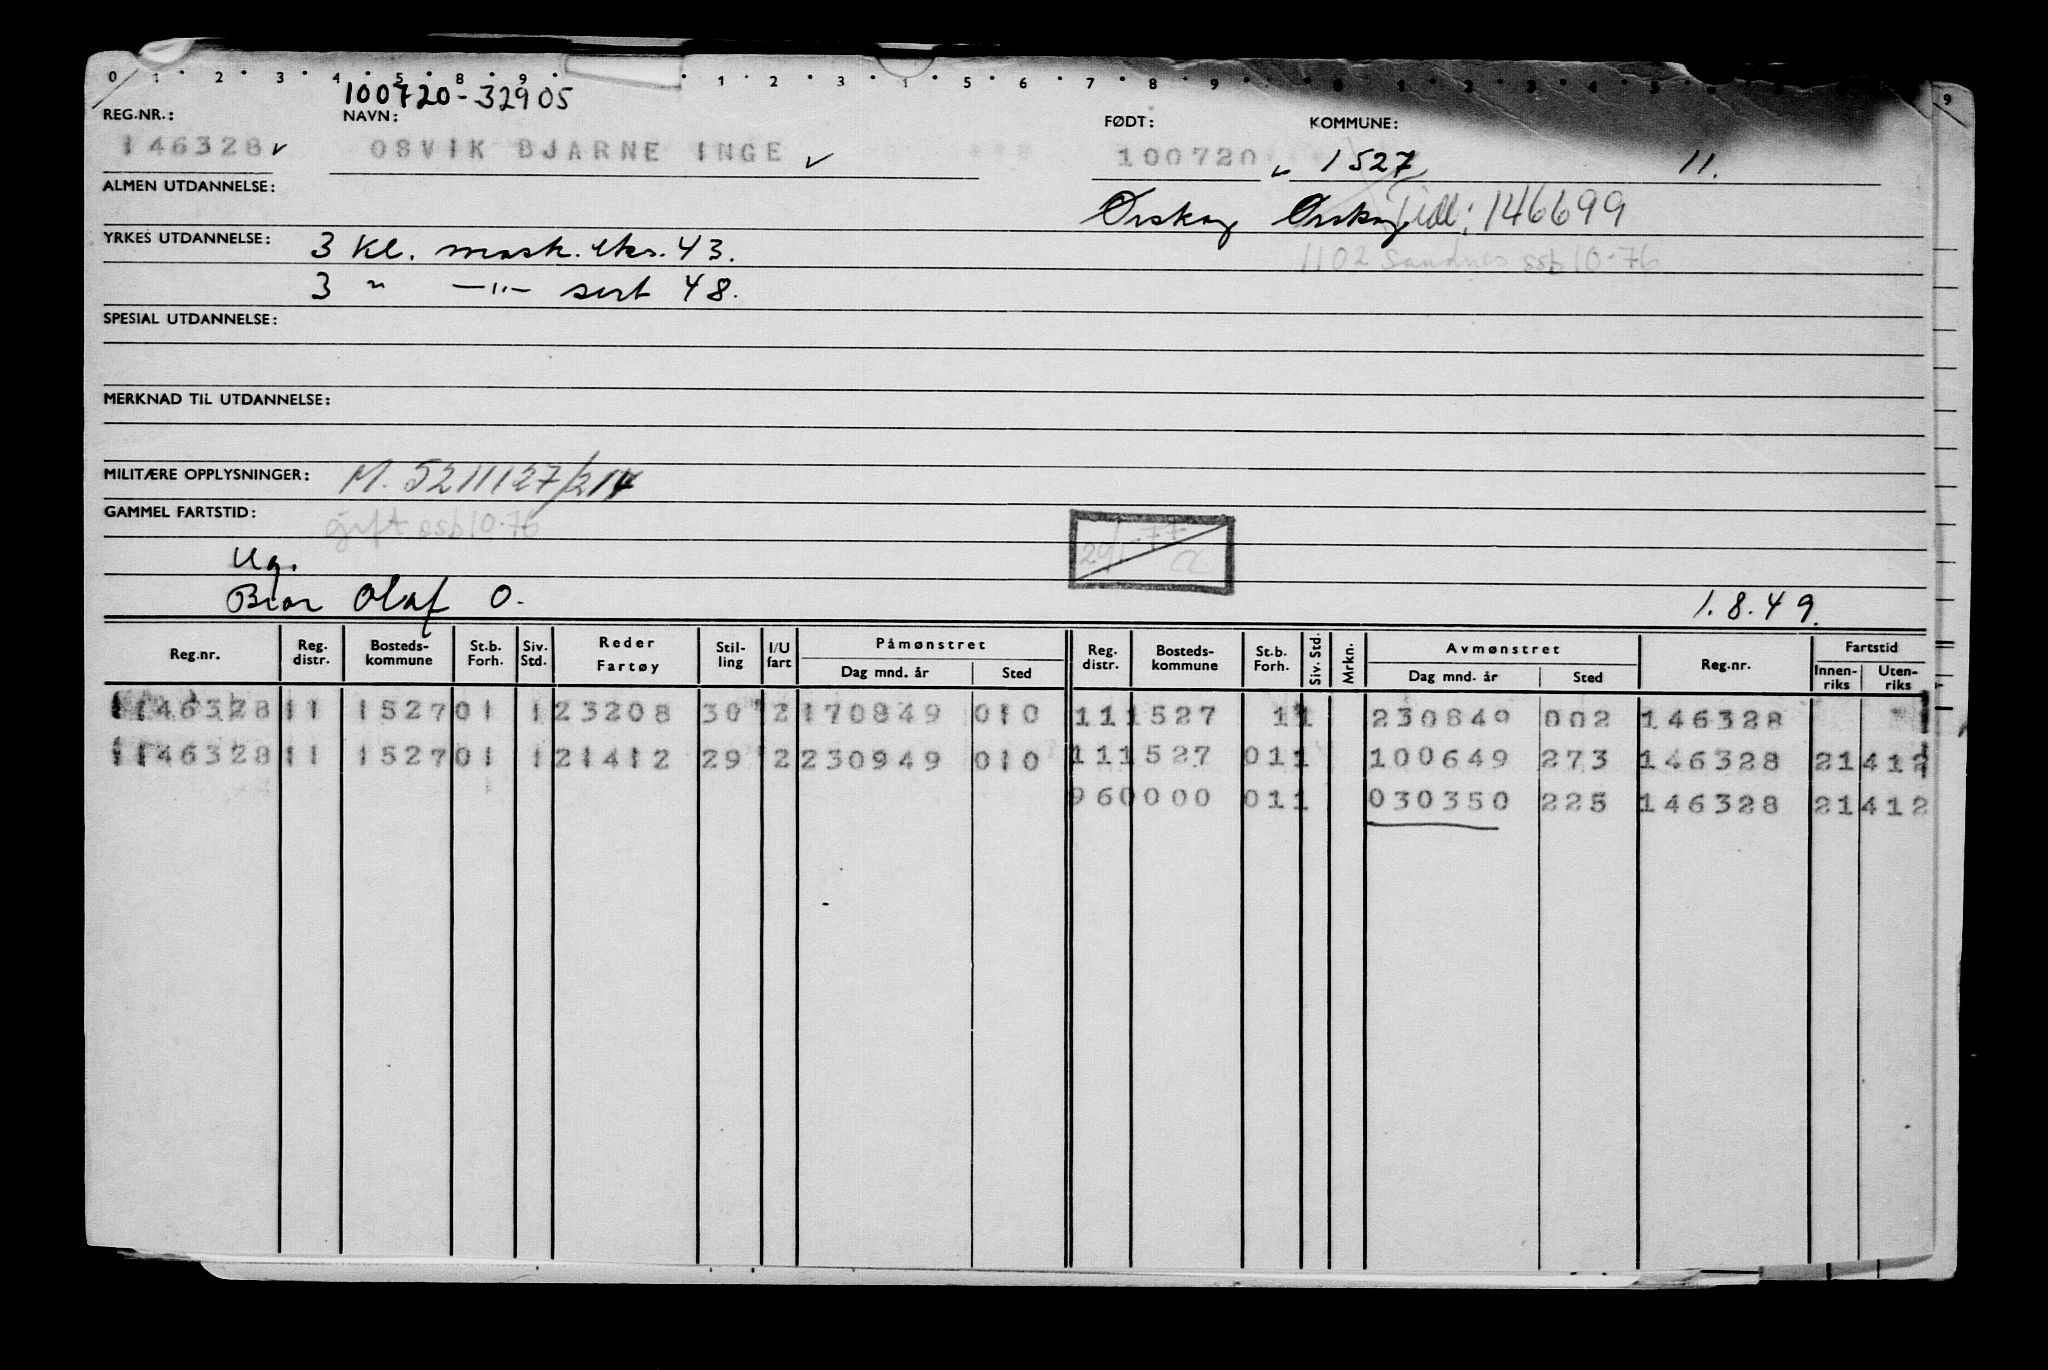 0 1 2 3 4 5 8 9 1 2 3 1 5 6 7 8 9 0 1 2 3 4 5 9
100720-32905
REG.NR.: NAVN: FØDT: KOMMUNE:
146328 ✓ OSVIK BJARNE INGE ✓ 100720 ✓ 1527 11.
ALMEN UTDANNELSE: Ørskog Ørskog Tidl: 146699
YRKES UTDANNELSE: 3 Kl. mask. eks. 43.
1102 Sandnes ssb 10-76
3 " —"— sert 48.
SPESIAL UTDANNELSE:
MERKNAD TIL UTDANNELSE:
MILITÆRE OPPLYSNINGER: M. 5211127/214
GAMMEL FARTSTID: gift ssb 10.76
29/1.77
Ug.
Bror Olaf O. 1.8.49.
Reg.nr. Reg. distr. Bosteds-kommune St.b. Forh. Siv. Std. Reder Fartøy Stil-ling I/U fart Påmønstret Dag mnd. år Sted Reg. distr. Bosteds-kommune St.b. Forh. Siv. Std. Mrkn. Avmønstret Dag mnd. år Sted Reg.nr. Fartstid Innen-riks Uten-riks
146328 11 1527 01 1 23208 30 2 170849 010 11 1527 1 1 230849 002 146328
146328 11 1527 01 1 21412 29 2 230949 010 11 1527 01 1 100649 273 146328 21412
96 0000 01 1 030350 225 146328 21412